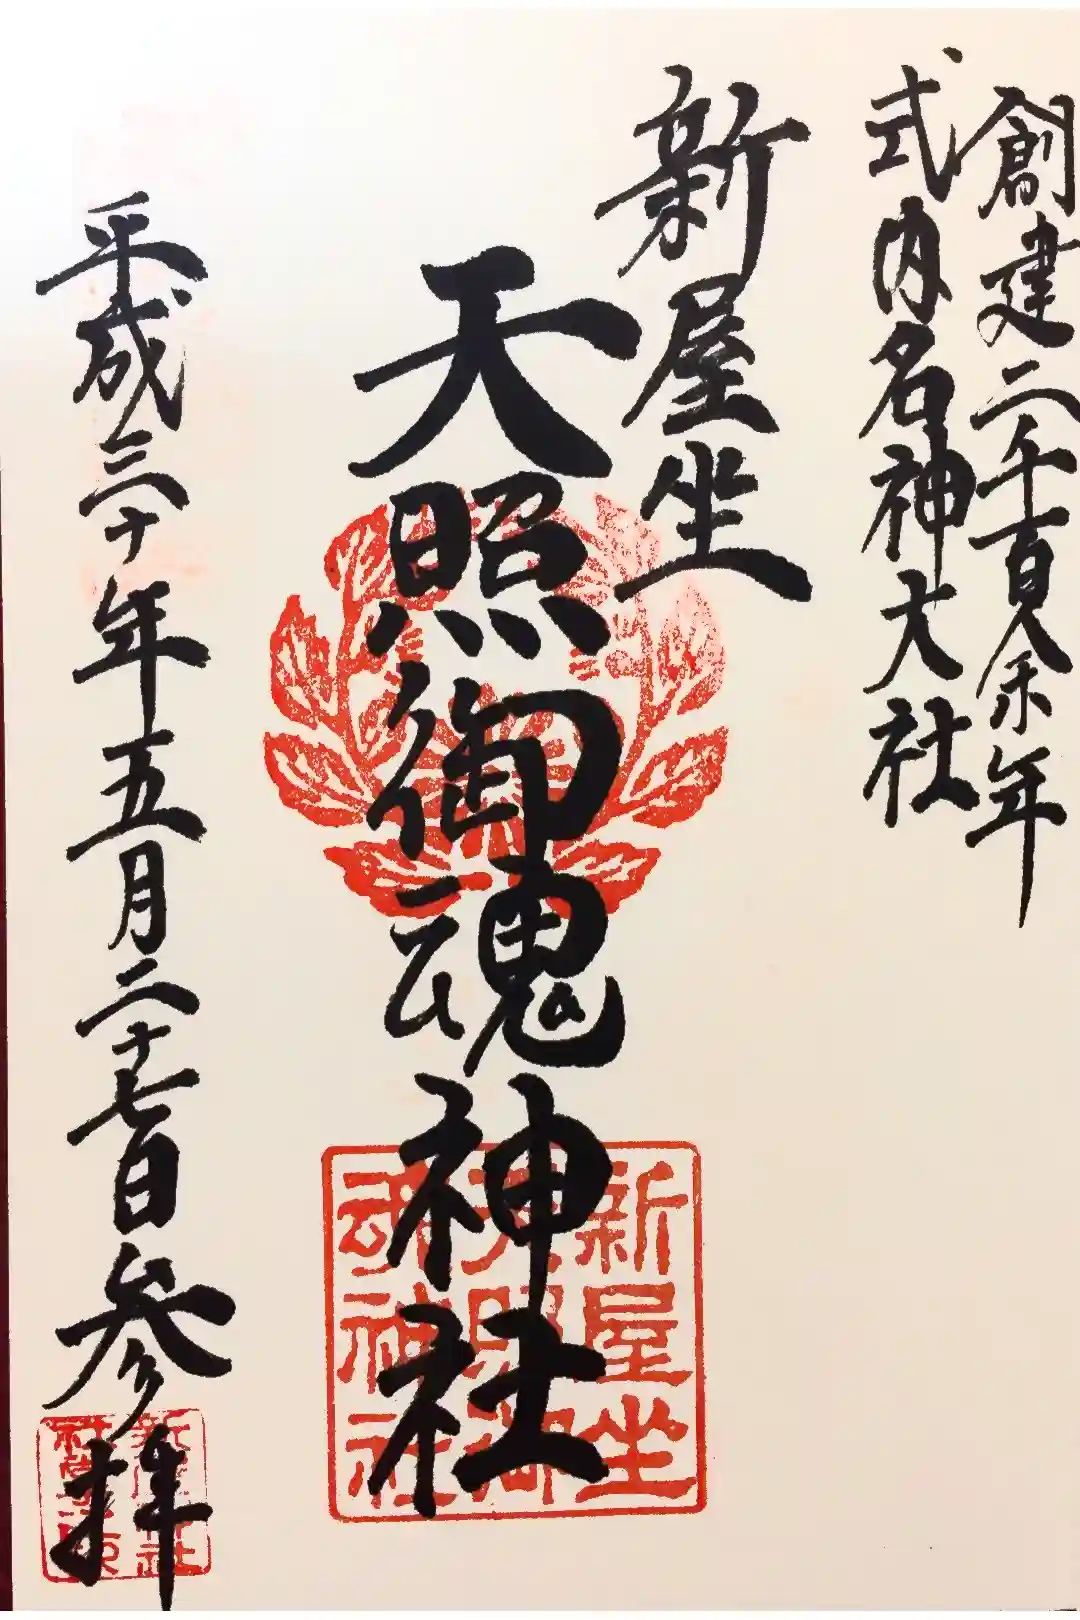 創建二千百余年
式内名神大社
新屋坐
天照御魂神社
新屋坐
天照御
魂神社
平成三十年五月二十七日参拝